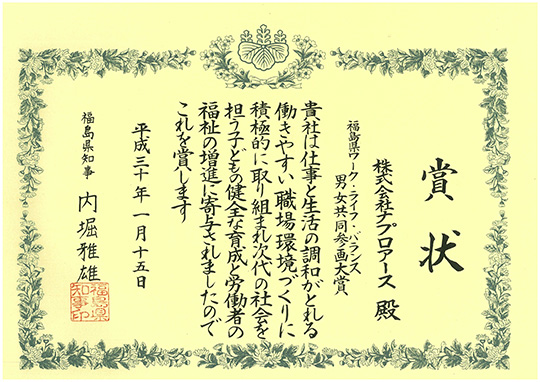 賞状
株式会社ナプロアース 殿
福島県ワーク・ライフ・バランス
男女共同参画大賞
貴社は仕事と生活の調和がとれる
働きやすい職場環境づくりに
積極的に取り組まれ次代の社会を
担う子どもの健全な育成と労働者の
福祉の増進に寄与されましたので
これを賞します
平成三十年一月十五日
福島県知事 内堀雅雄
福島県
知事印